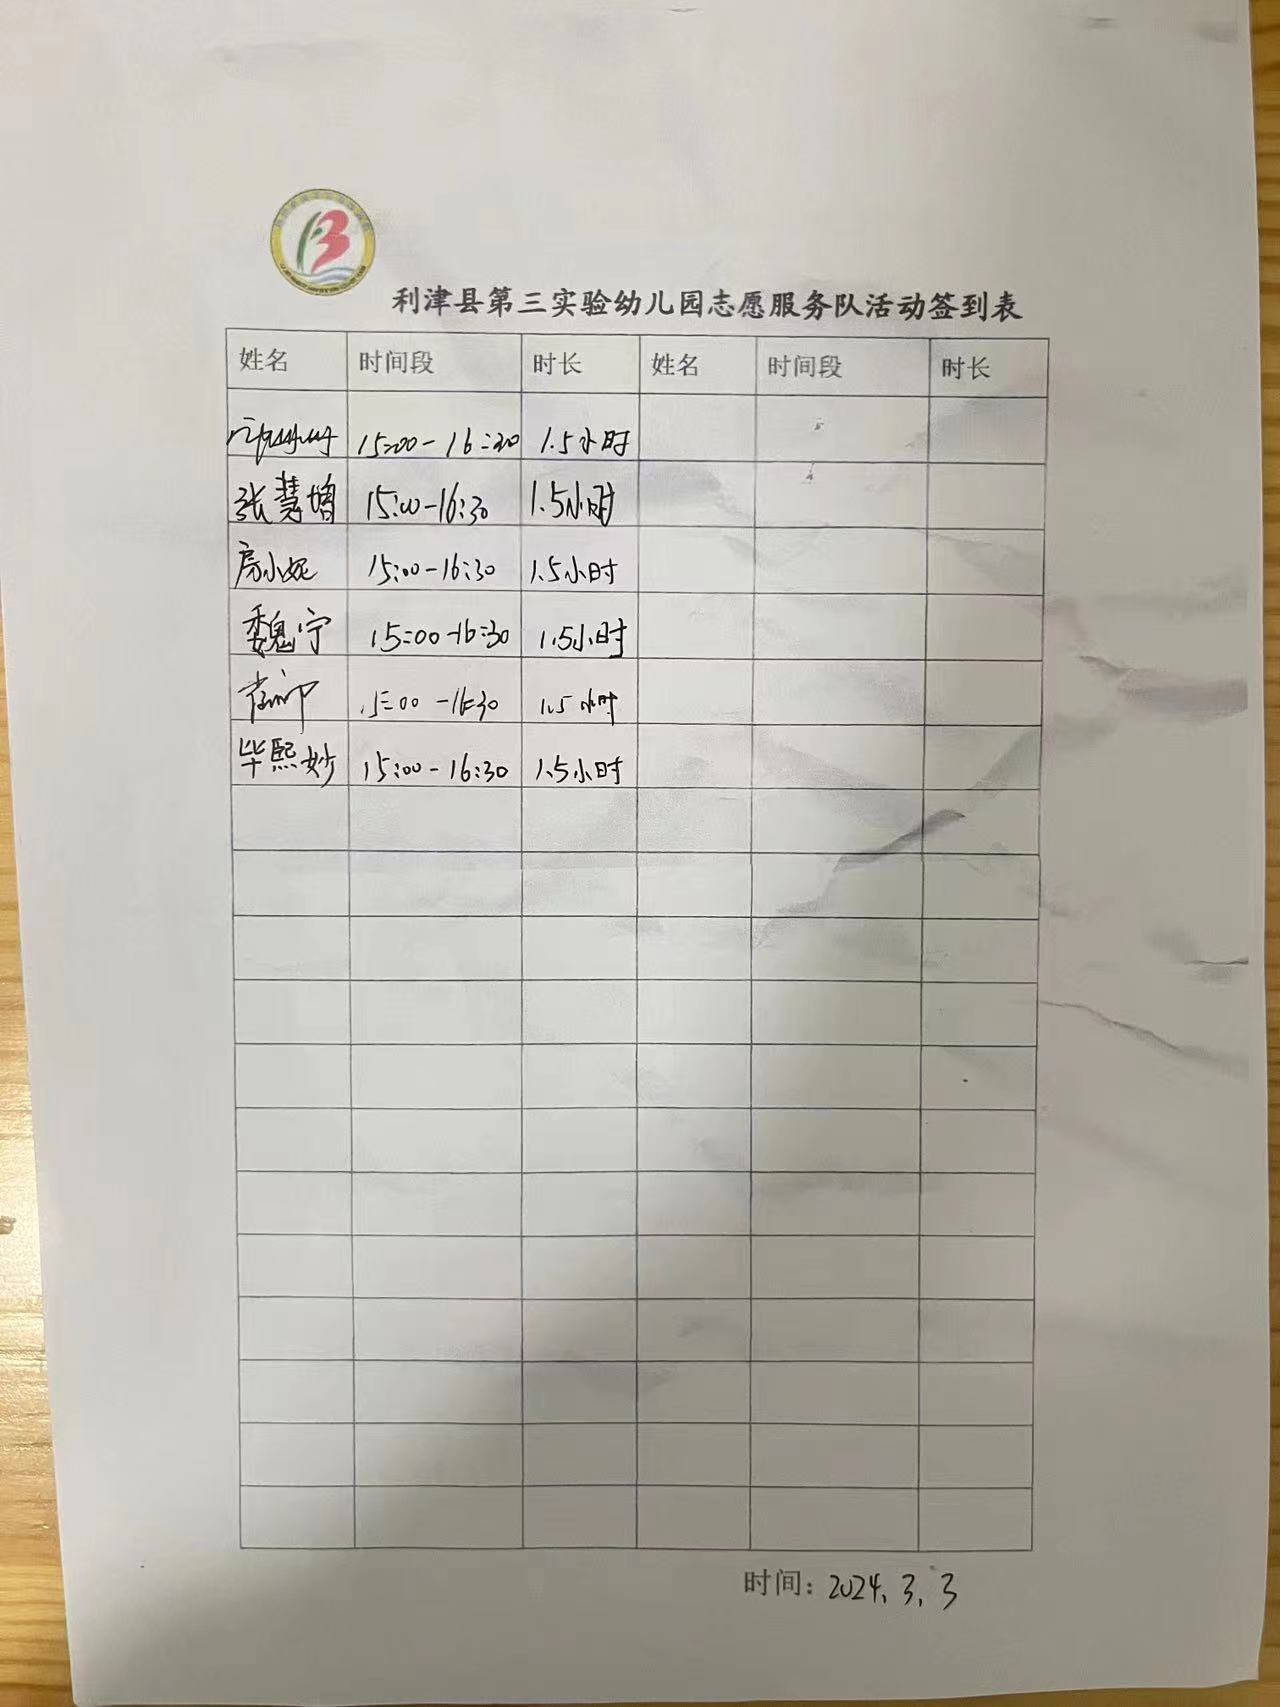 利津县第三实验幼儿园志愿服务队活动签到表
姓名 时间段 时长 姓名 时间段 时长
15:00-16:30 1.5小时
张慧增 15:00-16:30 1.5小时
房小妮 15:00-16:30 1.5小时
魏宁 15:00-16:30 1.5小时
15:00-16:30 1.5小时
毕熙妙 15:00-16:30 1.5小时
时间：2024.3.3